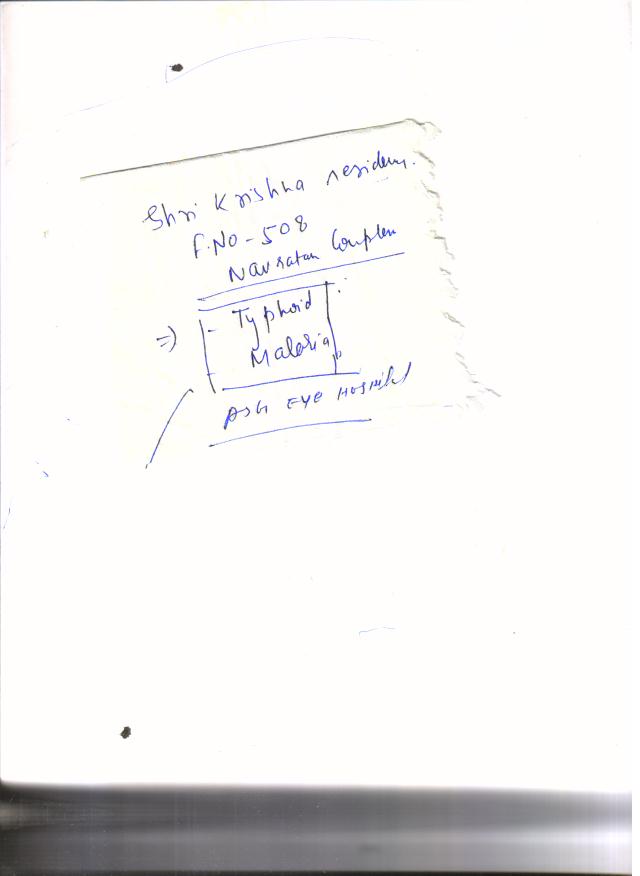 Shri Krishna residency.
F.NO-508
Navratan Complex
=) - Typhoid
Malaria
ASG EYE Hospital